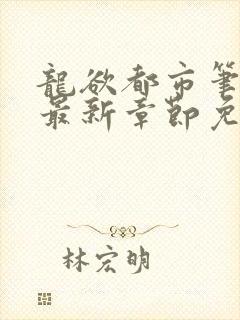 龍欲都市筆
最新章節免
林宏明